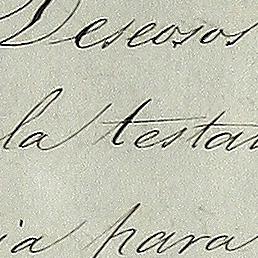 Deseosos
la testa
ia para